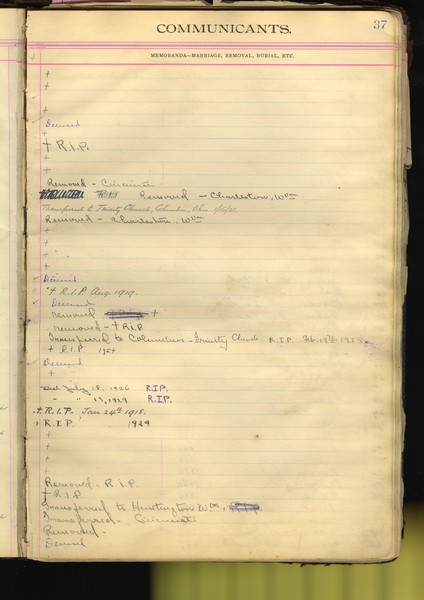 37
COMMUNICANTS.
MEMORANDA—MARRIAGE, REMOVAL, BURIAL, ETC.
+
+
+
Deceased
+
+ R.I.P.
+
+
Removed - Cincinnati
Removed - Charleston, W Va
Transferred to Trinity Church, Columbus, Ohio
Removed - Charleston, W Va
+
+
+
+
Deceased
+ R.I.P. Aug. 1919.
Deceased
removed +
removed - + R.I.P.
Transferred to Columbus - Trinity Church R.I.P. Feb. 1928
+ R.I.P. 1954
Deceased
+
Died July 18, 1926 R.I.P.
" " 13, 1929 R.I.P.
+ R.I.P. Jan 24th 1918.
+ R.I.P. 1929
+
+
+
+
Removed - R.I.P.
+ R.I.P.
Transferred to Huntington W Va.
Transferred - Cincinnati
Removed -
Deceased